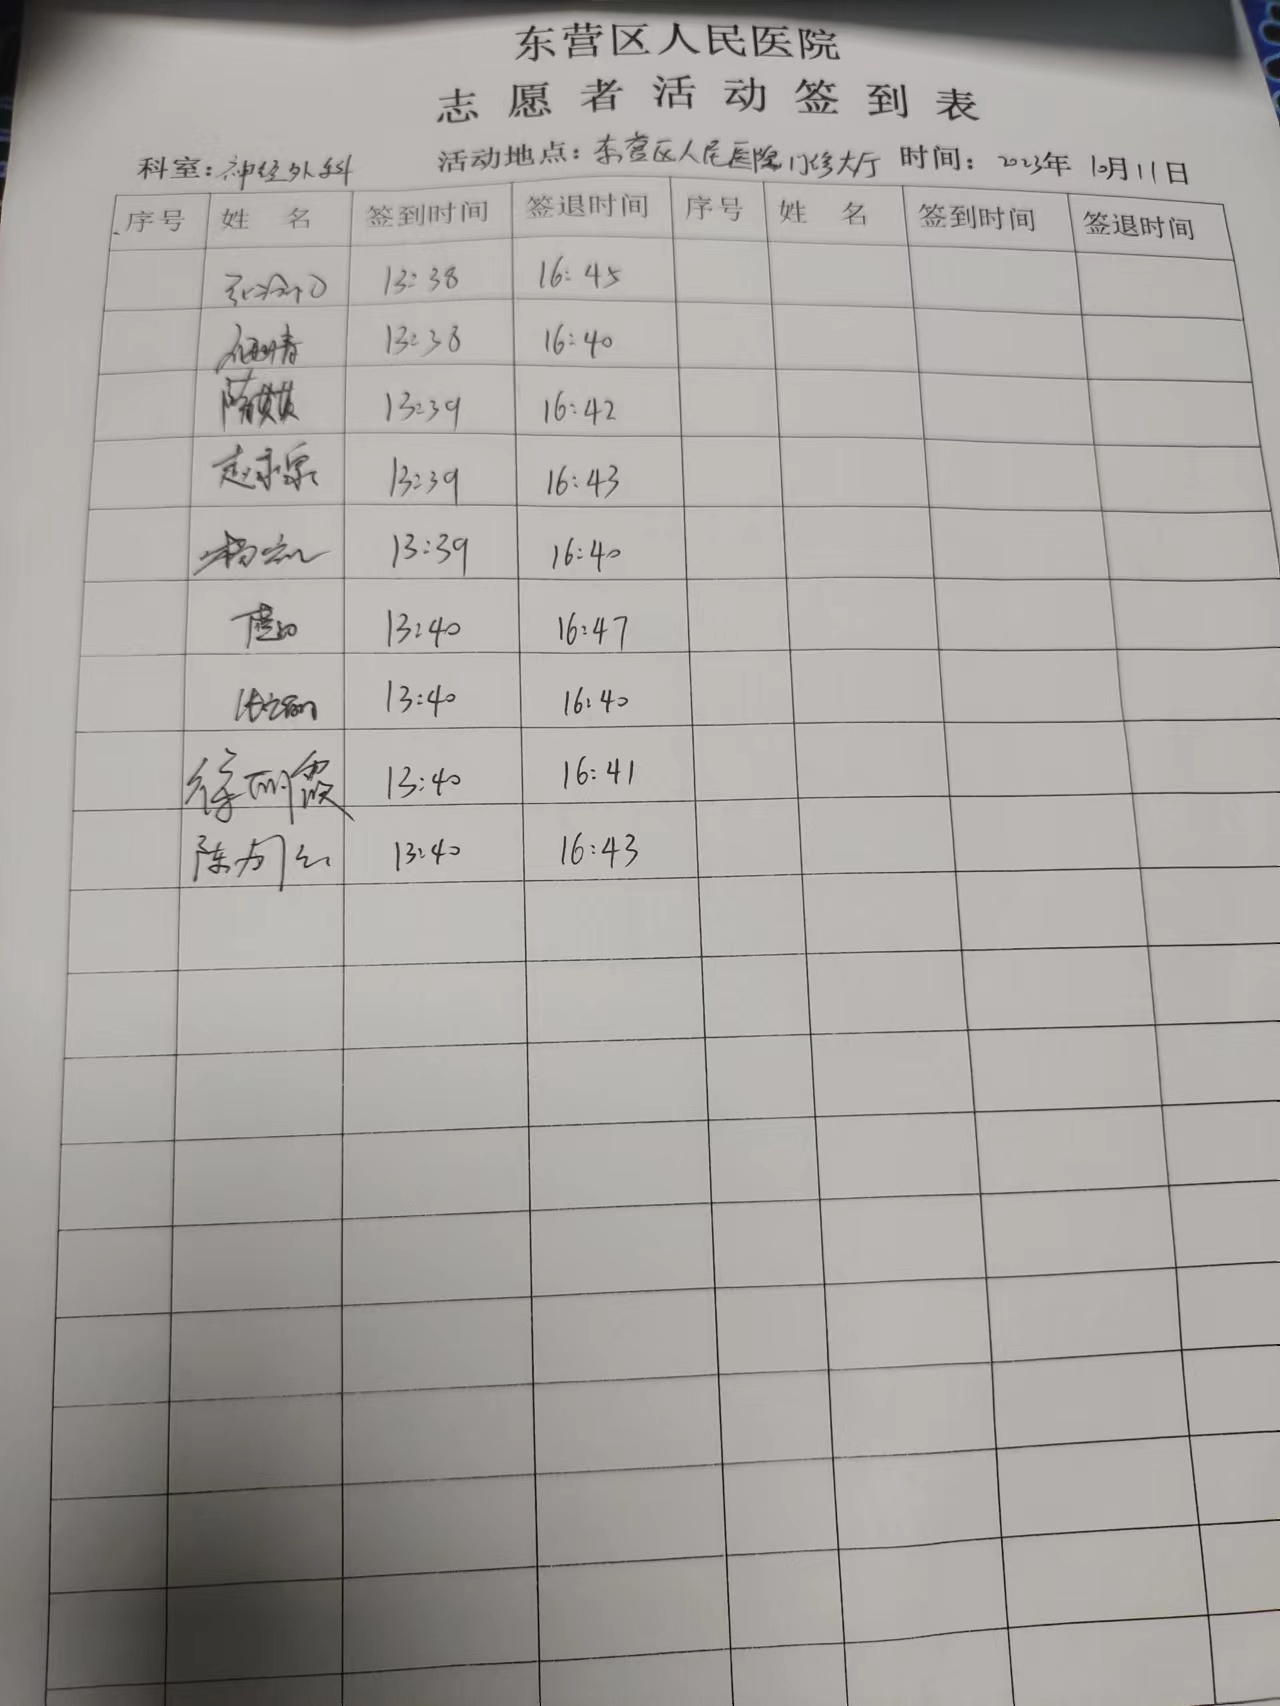 东营区人民医院
志愿者活动签到表
科室：神经外科 活动地点：东营区人民医院门诊大厅 时间：2023年10月11日
序号 姓名 签到时间 签退时间 序号 姓名 签到时间 签退时间
13:38 16:45
13:38 16:40
13:39 16:42
13:39 16:43
13:39 16:40
13:40 16:47
13:40 16:40
徐丽霞 13:40 16:41
13:40 16:43